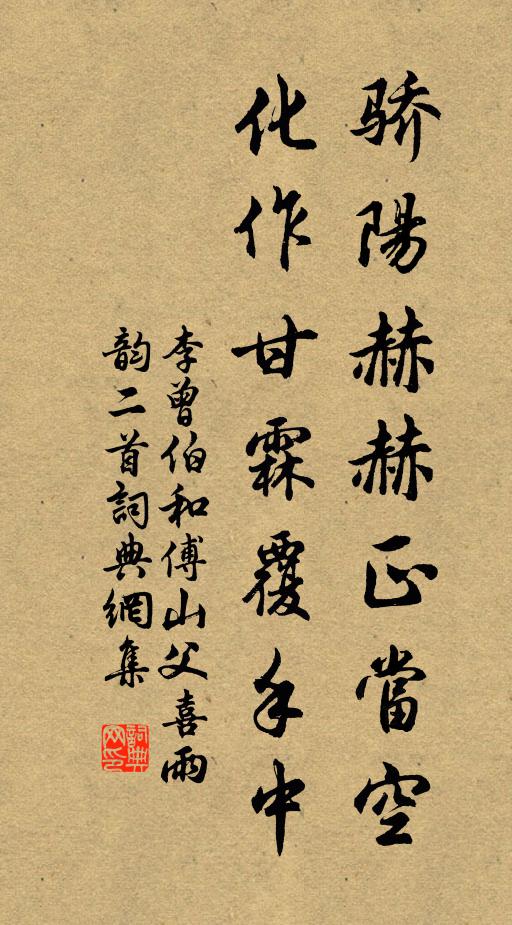 骄陽赫赫正當空
化作甘霖覆手中
李曾伯和傅山父喜雨
韵二首詞典網集
詞典
网印